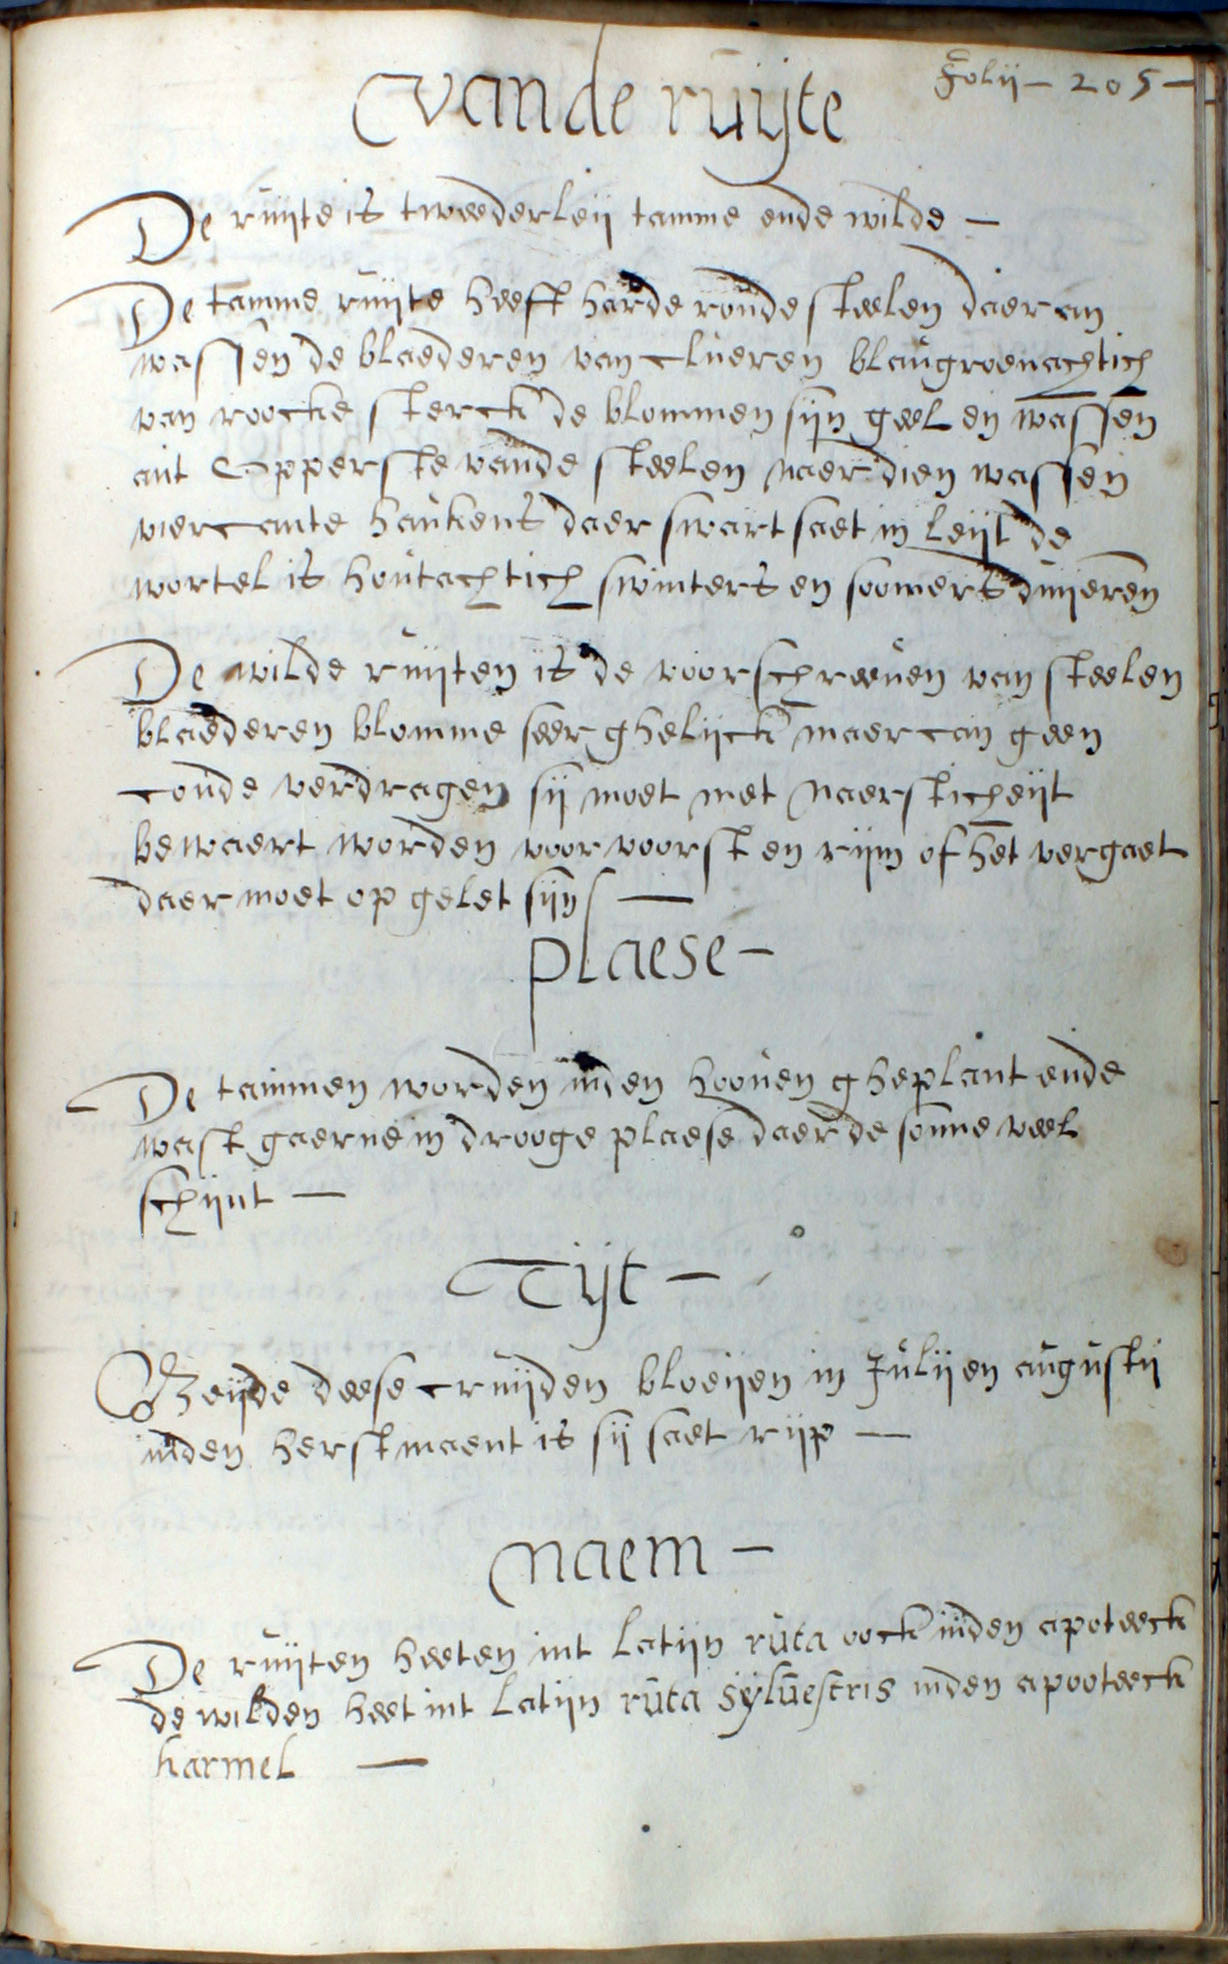 Folij - 205 -
van de ruijte
De ruijte is tweederleij tamme ende wilde -
De tamme ruijte heeft harde ronde steelen daer an
wassen de blaederen van clueren blaugroenachtich
van roocke sterck de blommen sijn geel en wassen
ant opperste vande steelen naer dien wassen
viercante haukens daer swart saet in leijt de
wortel is houtachtich swinters en soomers duijeren
De wilde ruijten is de voorschreeuen van steelen
blaederen blomme seer ghelijck maer can geen
coude verdragen sij moet met naersticheijt
bewaert worden voor voorst en rijm of het vergaet
daer moet op gelet sijn -
plaese -
De tammen worden inden hoouen gheplant ende
wast gaerne in drooge plaese daer de sonne veel
schijnt -
Tijt -
Beijde deese cruijden bloeijen in Julij en augustij
inden herstmaent is sij saet rijp -
naem -
De ruijten heeten int latijn ruta oock inden apoteeck
de wilden heet int latijn ruta syluestris inden apooteeck
harmel -